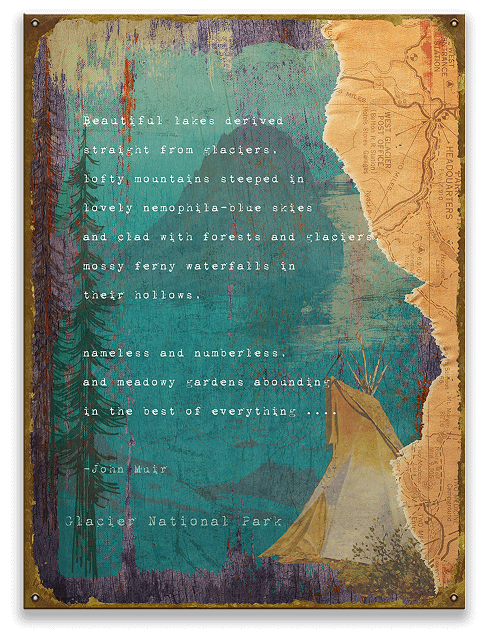 Beautiful lakes derived
straight from glaciers,
lofty mountains steeped in
lovely nemophila-blue skies
and clad with forests and glaciers,
mossy ferny waterfalls in
their hollows,
nameless and numberless,
and meadowy gardens abounding
in the best of everything ....
-John Muir
Glacier National Park
WEST
ENTRANCE
STATION
MILES
WEST GLACIER
POST OFFICE
HEADQUARTERS